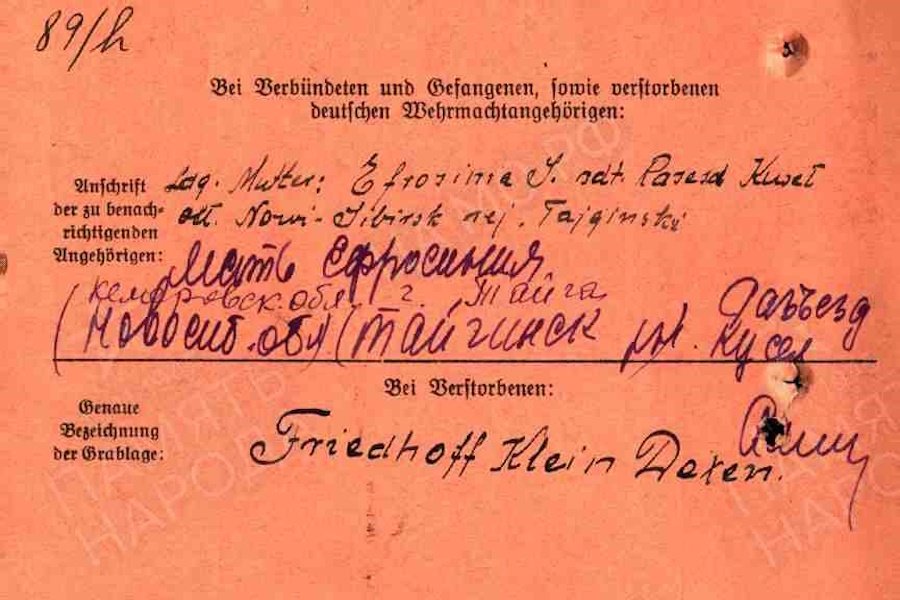 89/h
Bei Verbündeten und Gefangenen, sowie verstorbenen
deutschen Wehrmachtangehörigen:
Anschrift
der zu benach-
richtigenden
Angehörigen:
Mutter: Efrosima S. sdt. Rasesd Kusel
obl. Nowi-Sibirsk rej. Tajginski
Мать Ефросиния
Кемеровск. обл. г. Тайга
(Новосиб. обл (Тайгинск рн. Разъезд
Кусел
Bei Verstorbenen:
Genaue
Bezeichnung
der Grablage:
Friedhoff Klein Dexen.
ПАМЯТЬ
НАРОДА